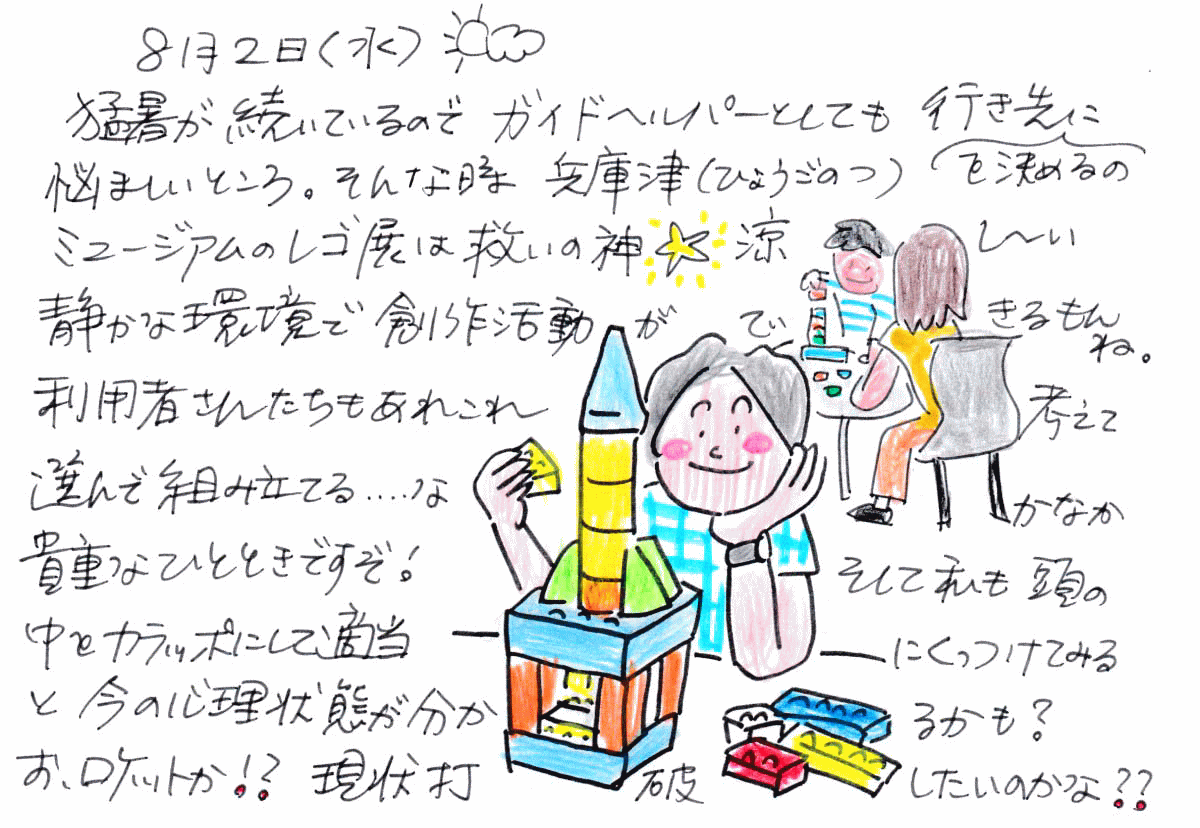 8月2日(水)
猛暑が続いているのでガイドヘルパーとしても行き先に
悩ましいところ。そんな時兵庫津(ひょうごのつ) を決めるの
ミュージアムのレゴ展は救いの神 涼し〜い
静かな環境で創作活動ができるもんね。
利用者さんたちもあれこれ考えて
選んで組み立てる....なかなか
貴重なひとときですぞ!そして私も頭の
中をカラッポにして適当にくっつけてみる
と今の心理状態が分かるかも?
お、ロケットか!?現状打破したいのかな??